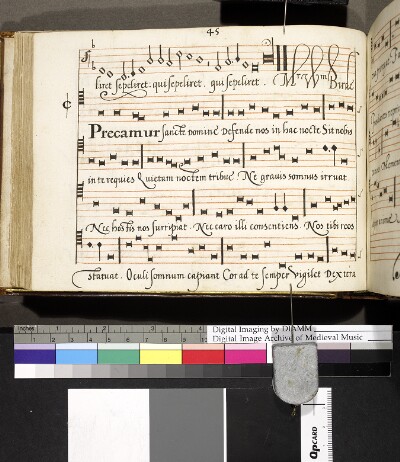 45
liret sepeliret. qui sepeliret. qui sepeliret. Mr. Wm. Birde
Precamur sancte domine Defende nos in hac nocte Sit nobis
in te requies Quietam noctem tribue Ne gravis somnus irruat
Nec hostis nos surripiat. Nec caro illi consentiens. Nos tibi reos
statuat. Oculi somnum capiant Cor ad te semper vigilet Dextera
inches 1 2 3 4 5 6
Digital Imaging by DIAMM
Digital Image Archive of Medieval Music
QPCARD